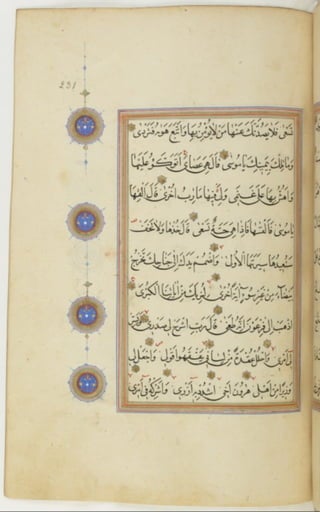 231
تَسْعٰى فَلَا يَصُدَّنَّكَ عَنْهَا مَنْ لَا يُؤْمِنُ بِهَا وَاتَّبَعَ هَوٰيهُ فَتَرْدٰى
وَمَا تِلْكَ بِيَمِينِكَ يَا مُوسٰى قَالَ هِيَ عَصَايَ اَتَوَكَّؤُ عَلَيْهَا
وَاَهُشُّ بِهَا عَلٰى غَنَمِي وَلِيَ فِيهَا مَاٰرِبُ اُخْرٰى قَالَ اَلْقِهَا
يَا مُوسٰى فَاَلْقٰيهَا فَاِذَا هِيَ حَيَّةٌ تَسْعٰى قَالَ خُذْهَا وَلَا تَخَفْ
سَنُعِيدُهَا سِيرَتَهَا الْاُولٰى وَاضْمُمْ يَدَكَ اِلٰى جَنَاحِكَ تَخْرُجْ
بَيْضَاءَ مِنْ غَيْرِ سُوءٍ اٰيَةً اُخْرٰى لِنُرِيَكَ مِنْ اٰيَاتِنَا الْكُبْرٰى
اِذْهَبْ اِلٰى فِرْعَوْنَ اِنَّهُ طَغٰى قَالَ رَبِّ اشْرَحْ لِي صَدْرِي وَيَسِّرْ
لِي اَمْرِي وَاحْلُلْ عُقْدَةً مِنْ لِسَانِي يَفْقَهُوا قَوْلِي وَاجْعَلْ لِي
وَزِيرًا مِنْ اَهْلِي هٰرُونَ اَخِي اشْدُدْ بِهِ اَزْرِي وَاَشْرِكْهُ فِي اَمْرِي